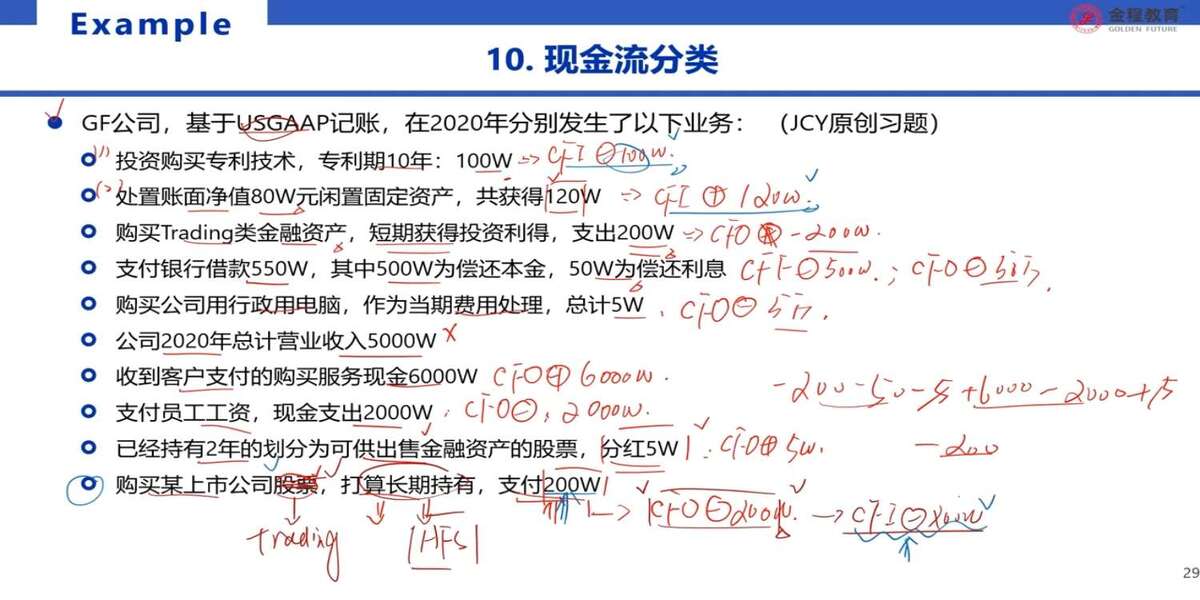 Example
金程教育
GOLDEN FUTURE
10. 现金流分类
GF公司，基于USGAAP记账，在2020年分别发生了以下业务： （JCY原创习题）
(1) 投资购买专利技术，专利期10年：100W => CFI ⊖100W.
(2) 处置账面净值80W元闲置固定资产，共获得120W => CFI ⊕ 120W.
购买Trading类金融资产，短期获得投资利得，支出200W => CFO -200W.
支付银行借款550W，其中500W为偿还本金，50W为偿还利息 CFF⊖500W. ; CFO⊖50万.
购买公司用行政用电脑，作为当期费用处理，总计5W. CFO⊖5万.
公司2020年总计营业收入5000W ×
收到客户支付的购买服务现金6000W CFO⊕6000W.
-200-50-5+6000-2000+5
支付员工工资，现金支出2000W. CFO⊖, 2000W.
已经持有2年的划分为可供出售金融资产的股票，分红5W. CFO⊕5W.
-200
购买某上市公司股票，打算长期持有，支付200W
CFO⊖200W. → CFI⊖200W
trading HFS
29